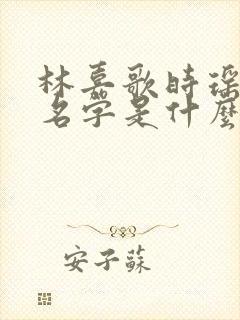 林嘉歌时瑶
名字是什麼
安子蘇